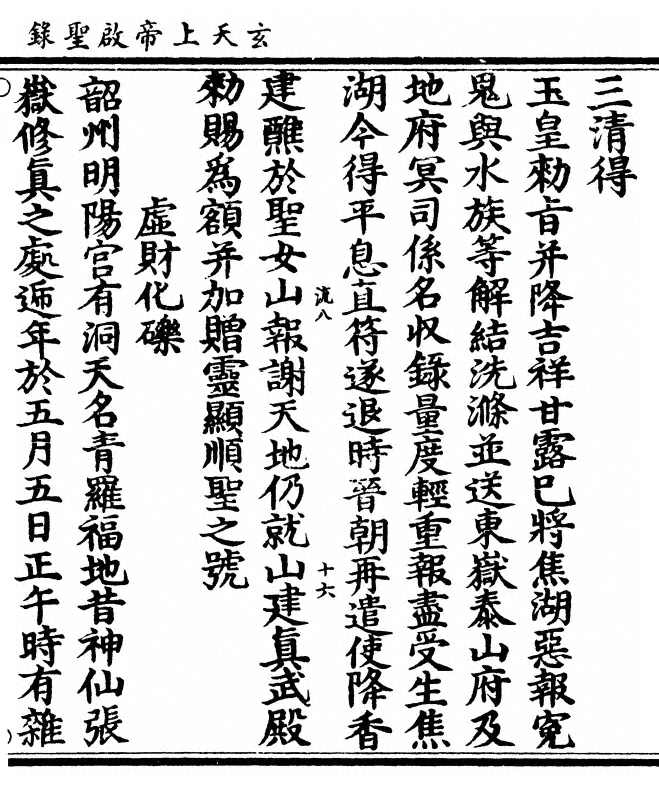 玄天上帝啟聖錄
三清得
玉皇勑旨并降吉祥甘露已將焦湖惡報寃
鬼與水族等解結洗滌並送東嶽泰山府及
地府冥司係名収錄量度輕重報盡受生焦
湖今得平息直符遂退時晉朝再遣使降香
流八
十六
建醮於聖女山報謝天地仍就山建真武殿
勑賜為額并加贈靈顯順聖之號
虛財化礫
韶州明陽宫有洞天名青羅福地昔神仙張
嶽修真之處遞年於五月五日正午時有雜